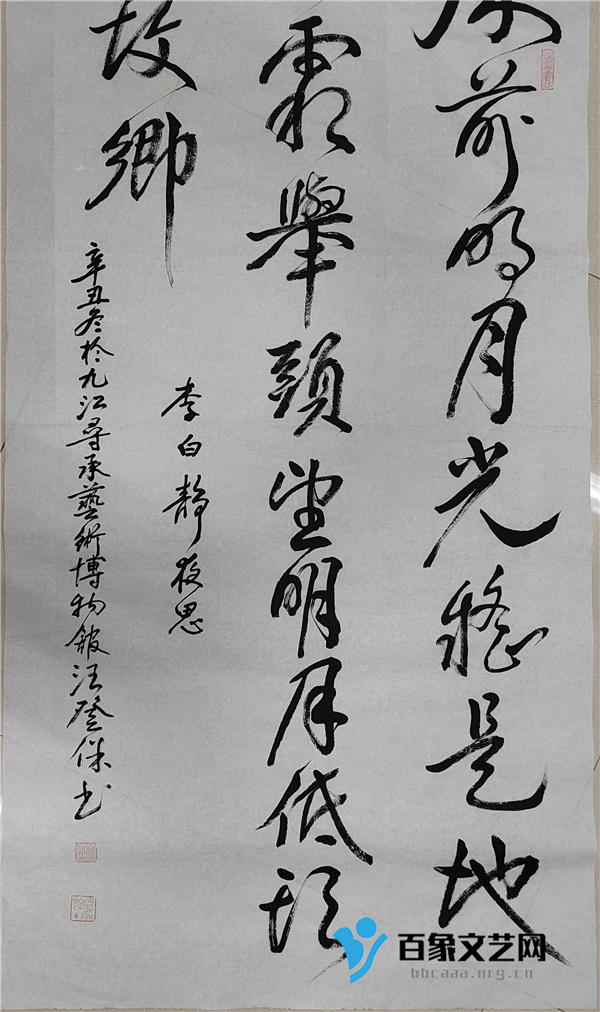 床前明月光疑是地
霜舉頭望明月低头
故鄉
李白靜夜思
辛丑冬於九江尋承藝術博物館汪登保书
百象文艺网
bbcaaa.org.cn